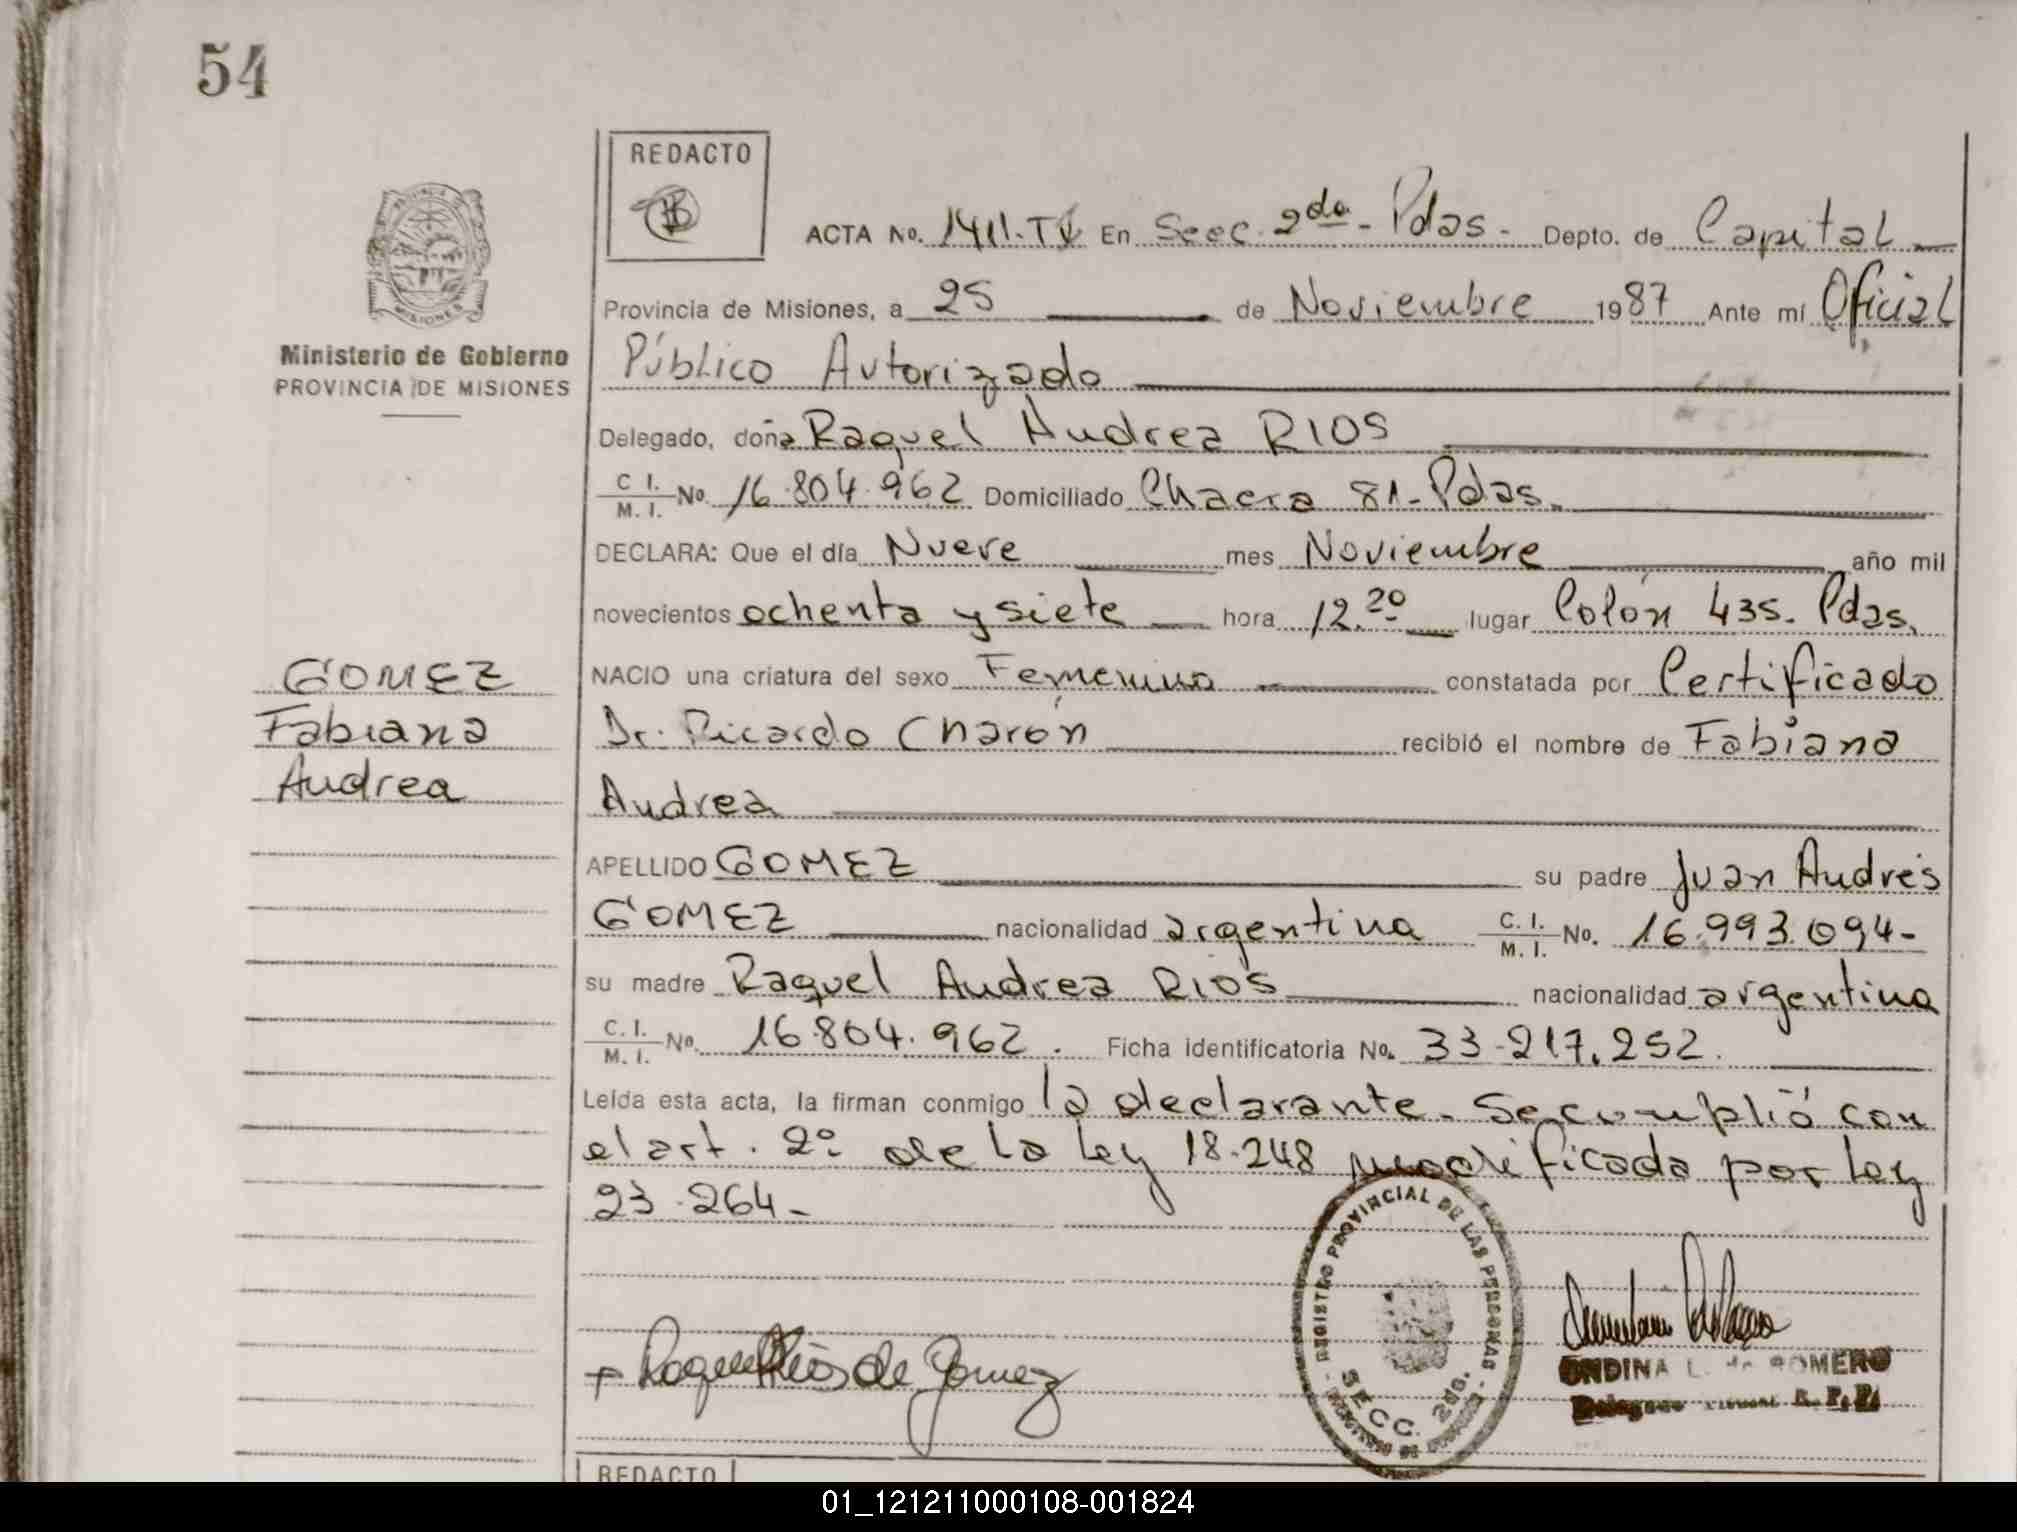 54
REDACTO
ACTA No. 1411-TV En Secc. 2da - Pdas - Depto. de Capital
Provincia de Misiones, a 25 de Noviembre 1987 Ante mí Oficial
Ministerio de Gobierno
PROVINCIA DE MISIONES
MISIONES
Público Autorizado
Delegado, doña Raquel Andrea RIOS
C I. M. I. No. 16.804.962 Domiciliado Chacra 81-Pdas.
DECLARA: Que el día Nueve mes Noviembre año mil
novecientos ochenta y siete hora 12.20 lugar Colón 435. Pdas.
GOMEZ
Fabiana
Andrea
NACIO una criatura del sexo Femenino constatada por Certificado
Dr. Ricardo Charón recibió el nombre de Fabiana
Andrea
APELLIDO GOMEZ su padre Juan Andrés
GOMEZ nacionalidad argentina C. I. M. I. No. 16.993.094-
su madre Raquel Andrea RIOS nacionalidad argentina
C. I. M. I. No. 16.804.962. Ficha identificatoria No. 33-217.252.
Leída esta acta, la firman conmigo la declarante. Se cumplió con
el art. 2º de la ley 18.248 modificada por ley
23.264-
REGISTRO PROVINCIAL DE LAS PERSONAS
SECC. 2da.
Raquel Rios de Gomez
ONDINA L. de ROMERO
Delegado R. P. P.
REDACTO
01_121211000108-001824